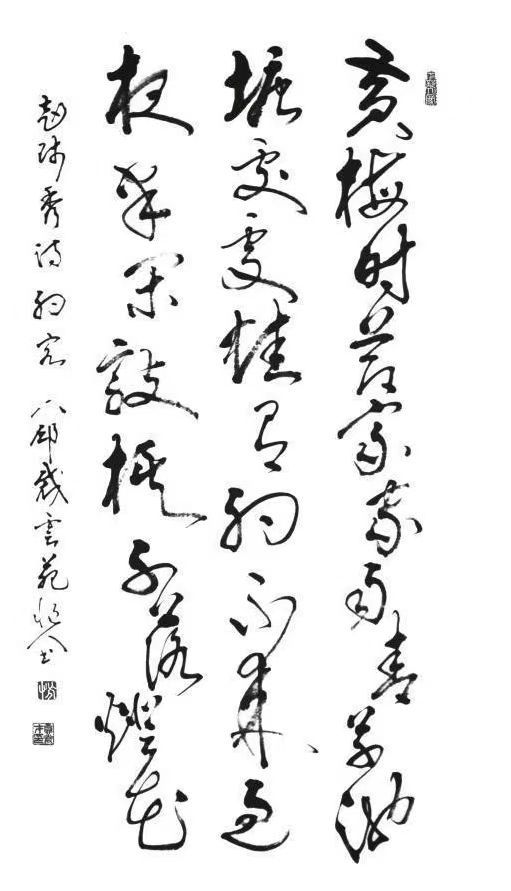 黄梅时节家家雨青草池
塘处处蛙有约不来过
夜半闲敲棋子落燈花
赵师秀诗约客 雲苑 书